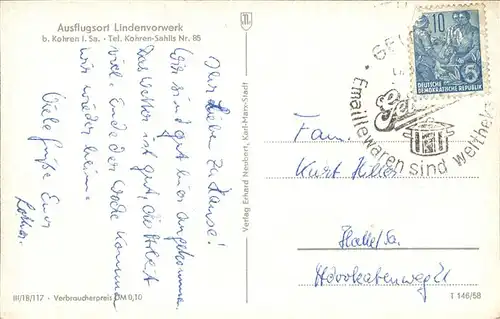 Ausflugsort Lindenvorwerk
b. Kohren i. Sa. · Tel. Kohren-Sahlis Nr. 85
Ihr Liebe zu Hause!
Wir sind gut hier angekommen.
Das Wetter ist gut, die Arbeit
viel. Ende der Woche kommen
wir wieder heim.
Viele Grüße Euer
Lothar
III/18/117 · Verbraucherpreis DM 0,10
Verlag Erhard Neubert, Karl-Marx-Stadt
10
DEUTSCHE
DEMOKRATISCHE REPUBLIK
Emaillewaren sind weltbe
Fam.
Kurt Hiller
Halle/Sa.
Advokatenweg 21
T 146/58